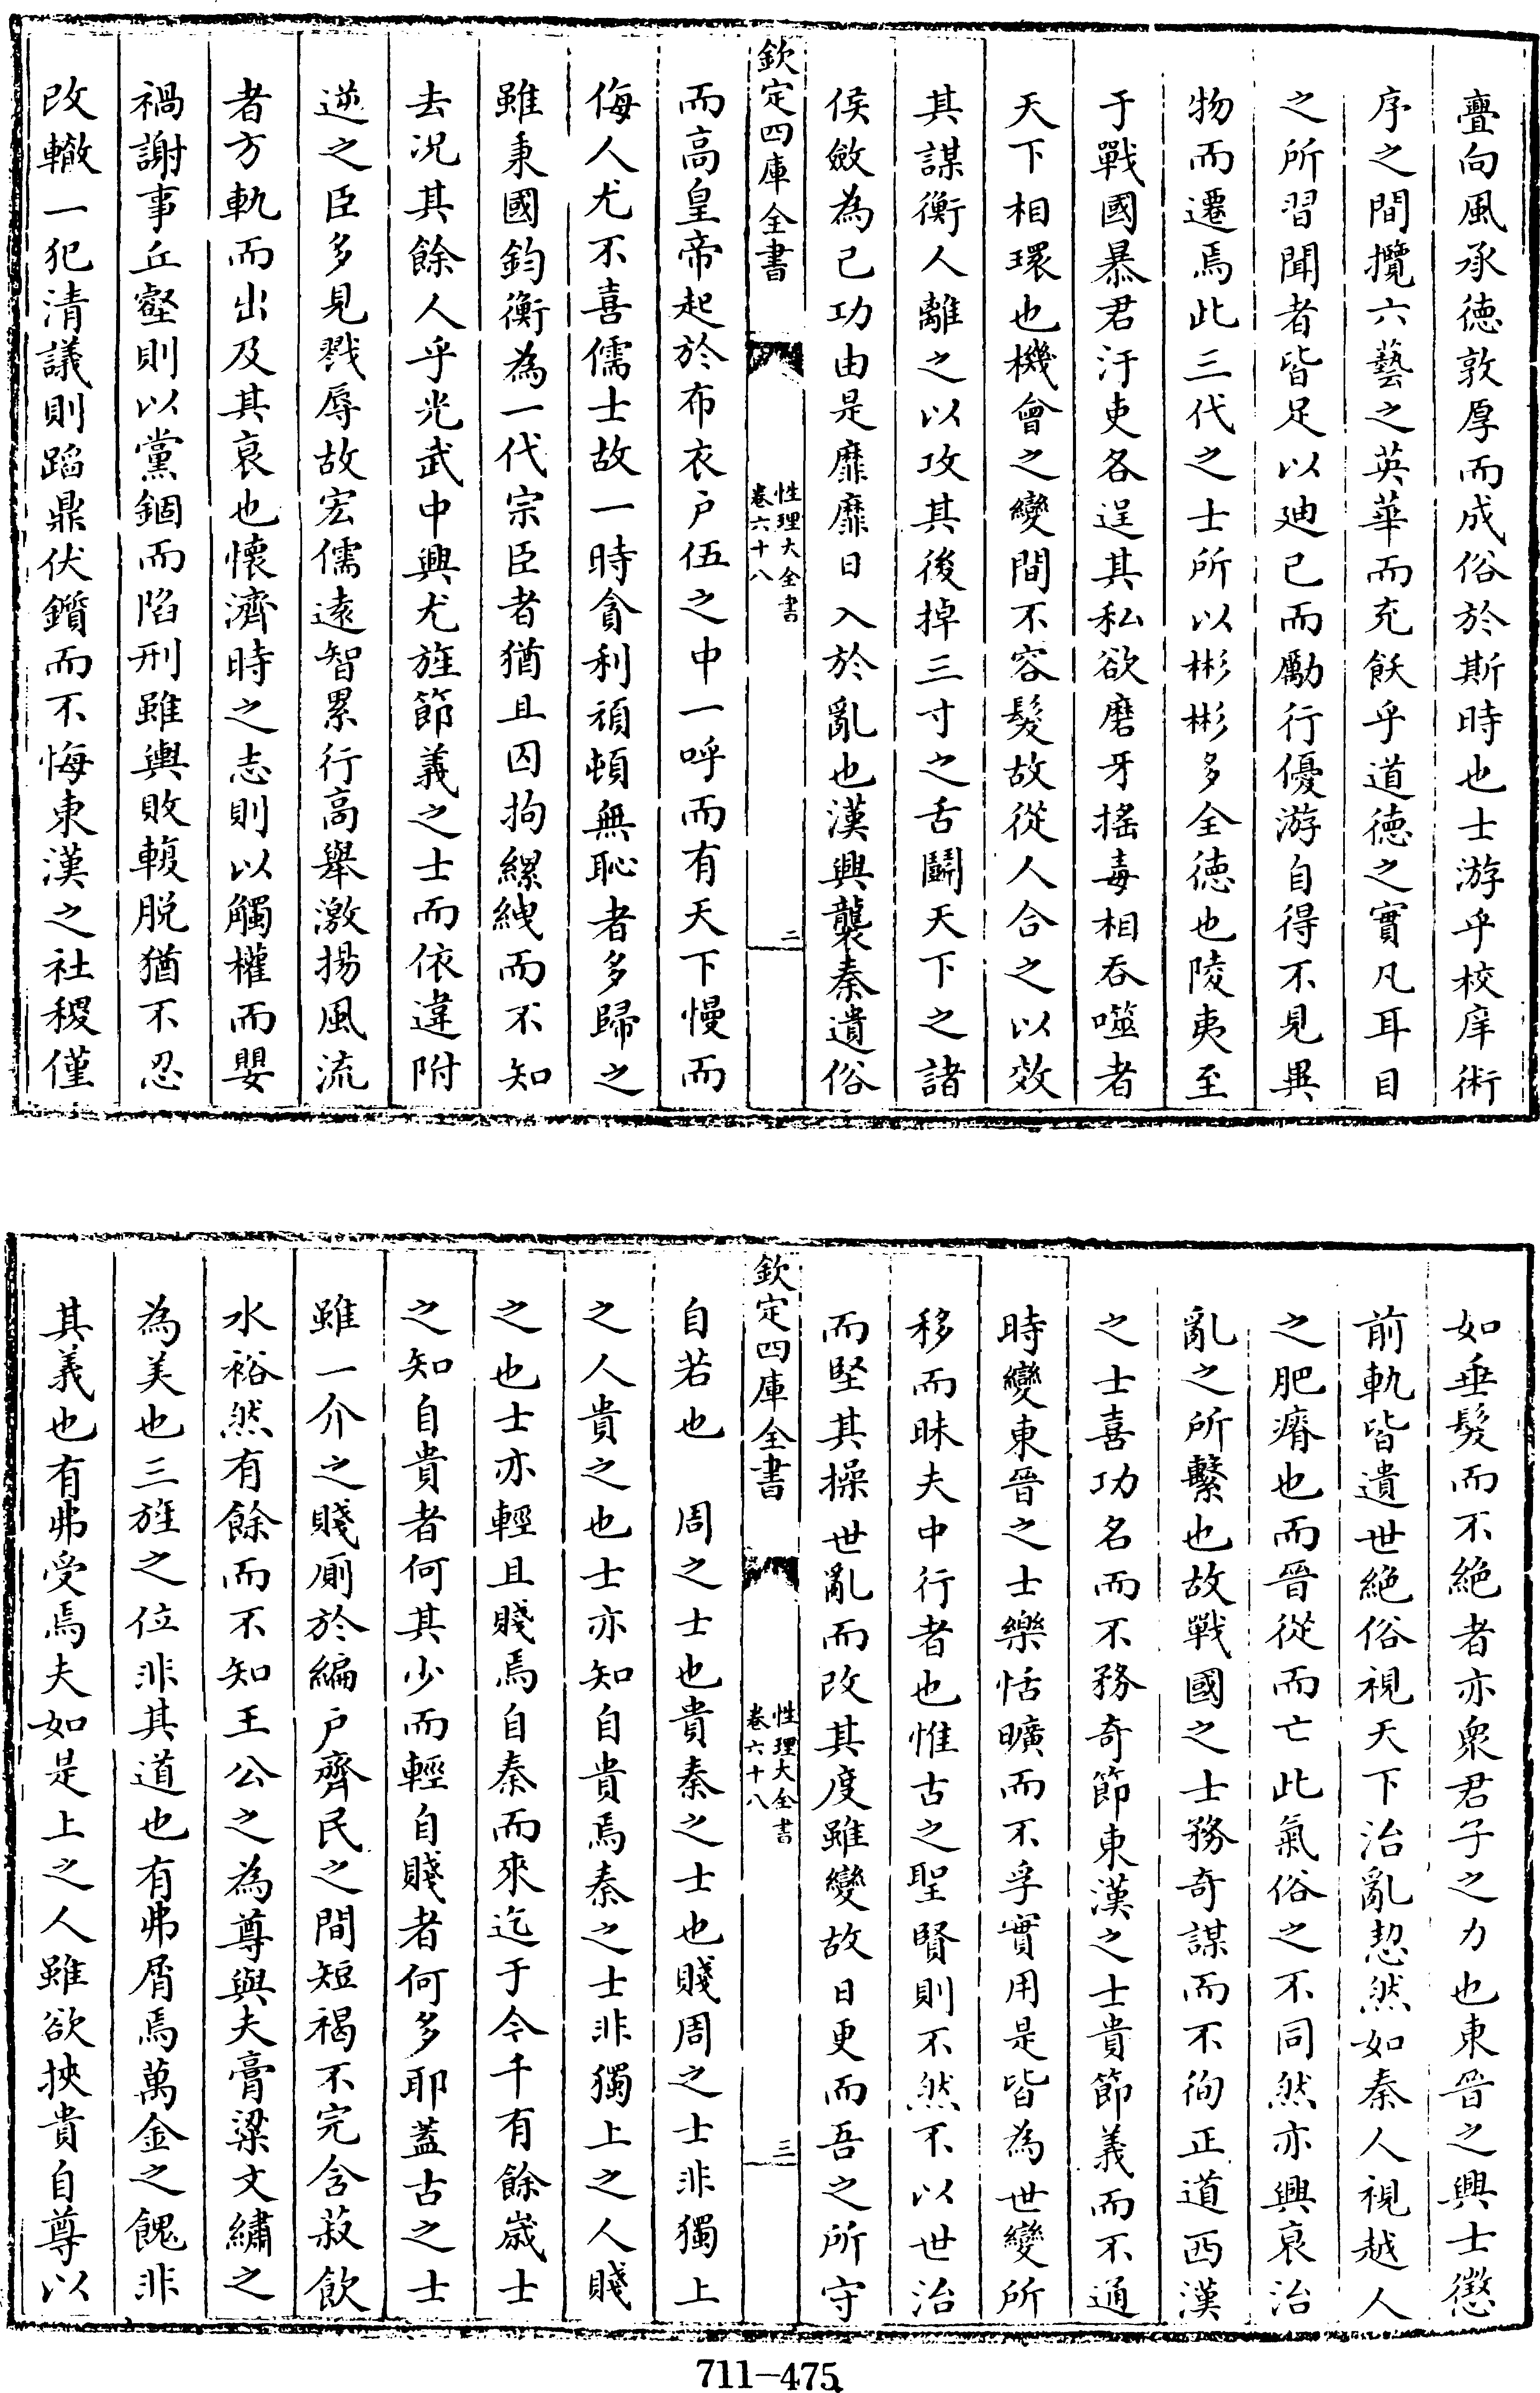 亹向風承徳敦厚而成俗於斯時也士游乎校庠術
序之間攬六藝之英華而充飫乎道徳之實凡耳目
之所習聞者皆足以廸已而勵行優游自得不見異
物而遷焉此三代之士所以彬彬多全徳也陵夷至
于戰國暴君汙吏各逞其私欲磨牙搖毒相吞噬者
天下相環也機會之變間不容髮故從人合之以效
其謀衡人離之以攻其後掉三寸之舌鬭天下之諸
侯斂為己功由是靡靡日入於亂也漢興襲秦遺俗
欽定四庫全書
性理大全書
卷六十八
二
而高皇帝起於布衣戶伍之中一呼而有天下慢而
侮人尤不喜儒士故一時貪利頑頓無恥者多歸之
雖秉國鈞衡為一代宗臣者猶且囚拘縲絏而不知
去況其餘人乎光武中興尤旌節義之士而依違附
逆之臣多見戮辱故宏儒遠智累行高舉激揚風流
者方軌而出及其衰也懷濟時之志則以觸權而嬰
禍謝事丘壑則以黨錮而陷刑雖輿敗輹脱猶不忍
改轍一犯清議則蹈鼎伏鑕而不悔東漢之社稷僅
如垂髮而不絶者亦衆君子之力也東晉之興士懲
前軌皆遺世絶俗視天下治亂恝然如秦人視越人
之肥瘠也而晉從而亡此氣俗之不同然亦興衰治
亂之所繫也故戰國之士務奇謀而不徇正道西漢
之士喜功名而不務奇節東漢之士貴節義而不通
時變東晉之士樂恬曠而不孚實用是皆為世變所
移而昧夫中行者也惟古之聖賢則不然不以世治
而堅其操世亂而改其度雖變故日更而吾之所守
欽定四庫全書
性理大全書
卷六十八
三
自若也　周之士也貴秦之士也賤周之士非獨上
之人貴之也士亦知自貴焉秦之士非獨上之人賤
之也士亦輕且賤焉自秦而來迄于今千有餘歳士
之知自貴者何其少而輕自賤者何多耶蓋古之士
雖一介之賤厠於編戶齊民之間短褐不完含菽飲
水裕然有餘而不知王公之為尊與夫膏粱文繡之
為美也三旌之位非其道也有弗屑焉萬金之餽非
其義也有弗受焉夫如是上之人雖欲挾貴自尊以
711-475